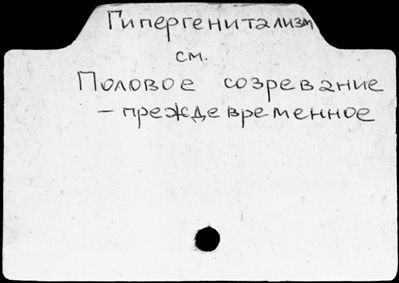 Гипергенитализм
см.
Половое созревание
– преждевременное